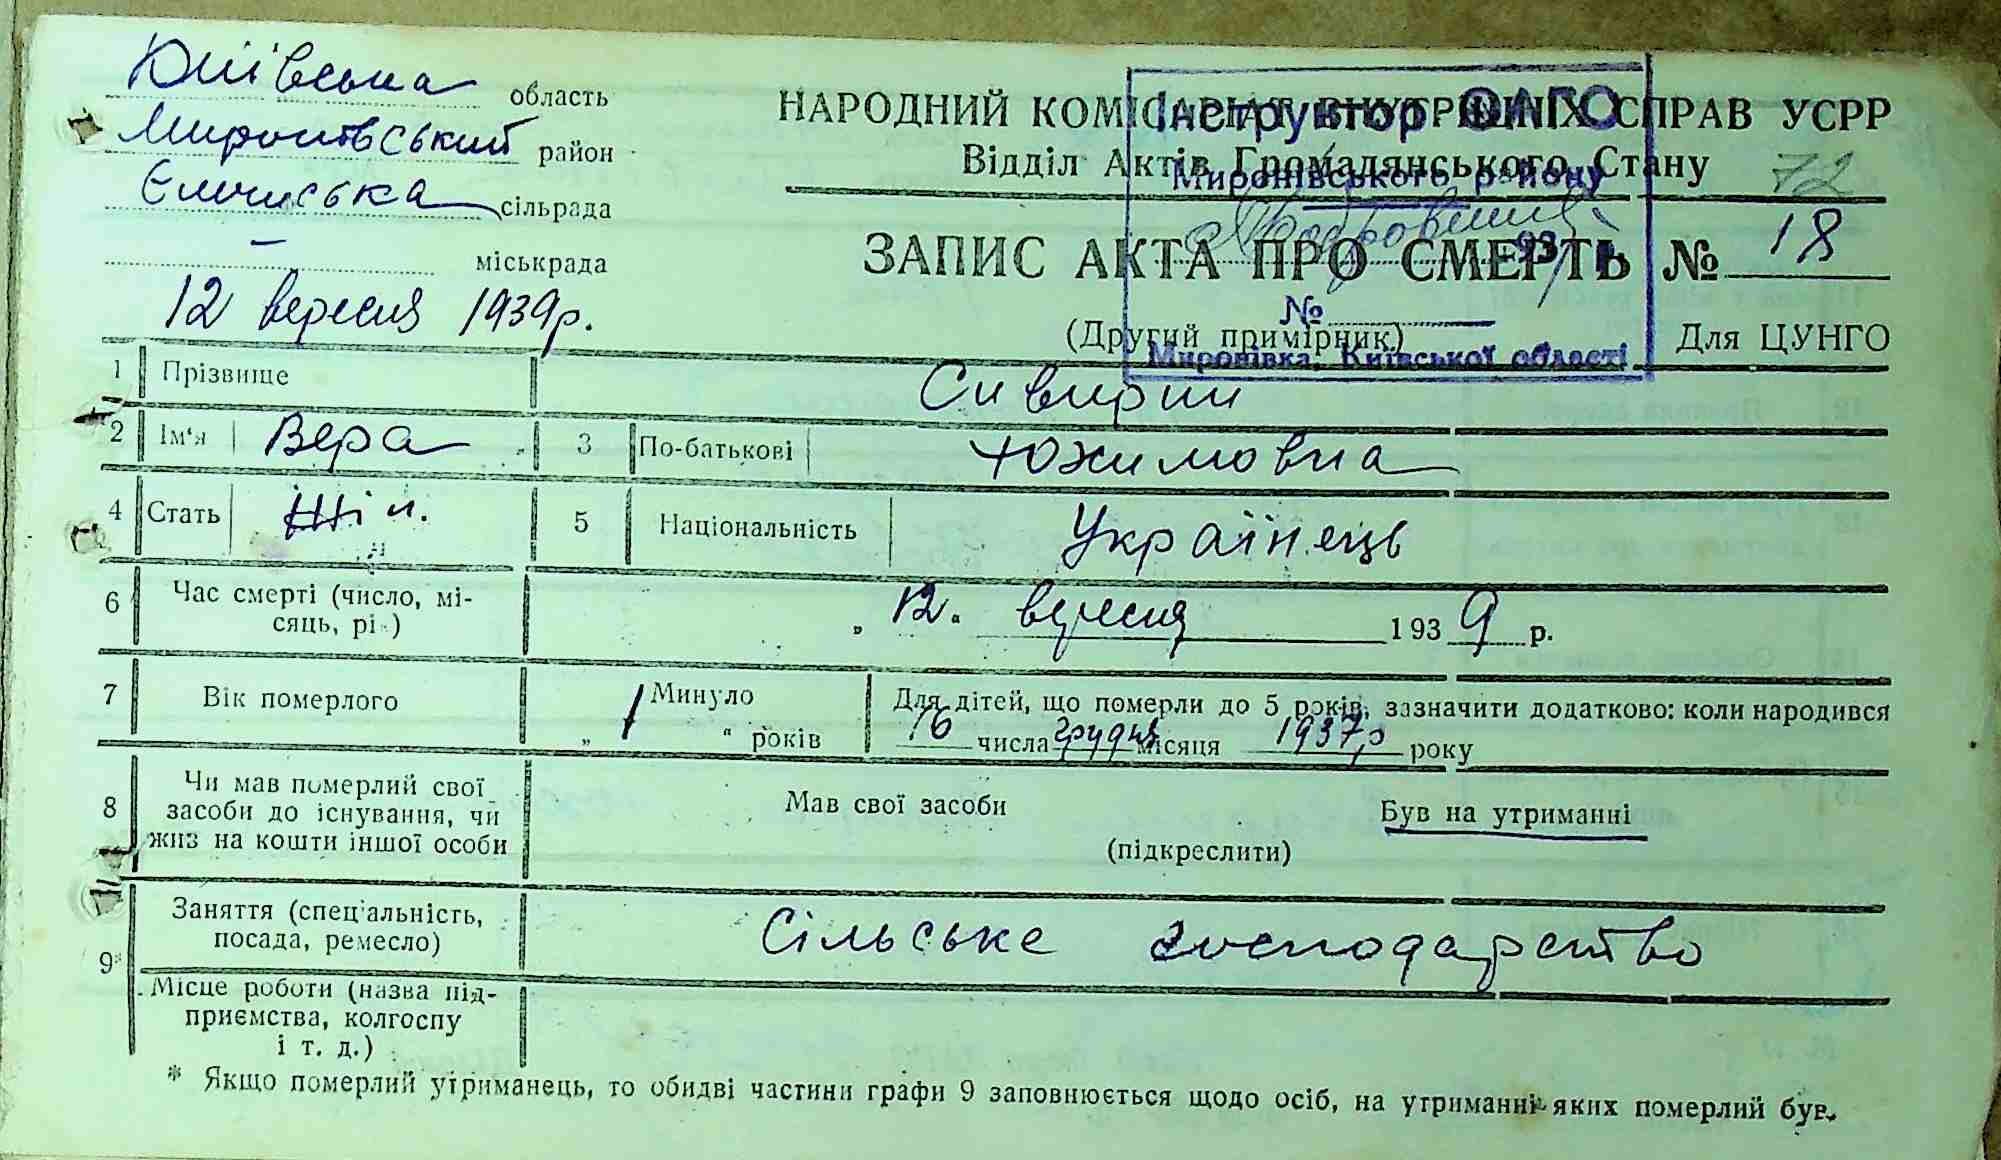 Київська область
Миронівський район
Ємчиська сільрада
— міськрада
12 вересня 1939р.
НАРОДНИЙ КОМІСАРІАТ ВНУТРІШНІХ СПРАВ УСРР
Відділ Актів Громадянського Стану
72
ЗАПИС АКТА ПРО СМЕРТЬ № 18
(Другий примірник) Для ЦУНГО
Інструктор ФАГС
Миронівського району
193 р.
№
Миронівка, Київської області
1 Прізвище Сивирин
2 Ім'я Вера 3 По-батькові Юхимовна
4 Стать Жін. 5 Національність Українець
6 Час смерті (число, мі-
сяць, рі )
„ 12 " вересня 1939 р.
7 Вік померлого Минуло
„ 1 " років
Для дітей, що померли до 5 років, зазначити додатково: коли народився
16 числа грудня місяця 1937р року
8 Чи мав померлий свої
засоби до існування, чи
жив на кошти іншої особи
Мав свої засоби Був на утриманні
(підкреслити)
9* Заняття (спеціальність,
посада, ремесло)
Сільське господарство
Місце роботи (назва під-
приємства, колгоспу
і т. д.)
* Якщо померлий утриманець, то обидві частини графи 9 заповнюється щодо осіб, на утриманні яких померлий був.